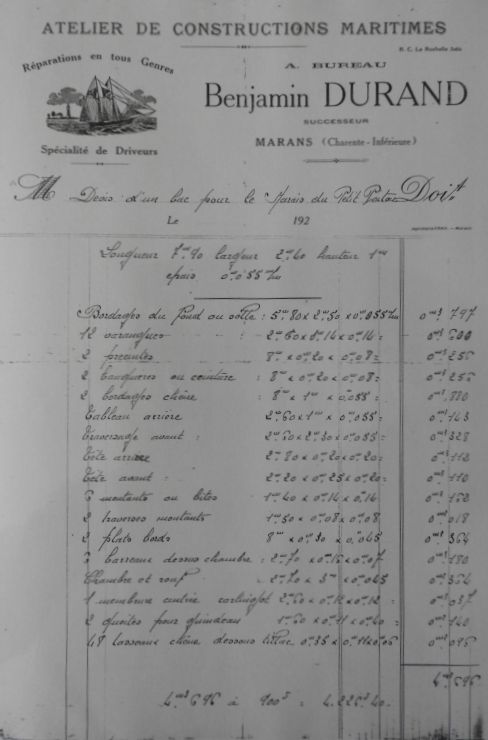 ATELIER DE CONSTRUCTIONS MARITIMES
R. C. La Rochelle
Réparations en tous Genres
A. BUREAU
Benjamin DURAND
SUCCESSEUR
MARANS (Charente-Inférieure)
Spécialité de Driveurs
M Devis d'un bac pour le Marais du Petit Doit
Le 192
Longueur 7m90 largeur 2m60 hauteur 1m
epais 0m055
Bordages du fond ou sole : 5m80 x 2m50 x 0m055 0m3 797
12 varangues : 2m60 x 0m16 x 0m16 = 0m3 800
2 preceintes 8m x 0m20 x 0m08 = 0m3 256
2 bauquieres ou ceinture : 8m x 0m20 x 0m08 = 0m3 256
2 bordages chêne : 8m x 1m x 0m055 = 0m3 880
Tableau arrière 2m60 x 1m x 0m055 = 0m3 143
Traversage avant : 2m60 x 2m30 x 0m055 = 0m3 328
Tête arrière 2m80 x 0m20 x 0m20 = 0m3 112
Tête avant : 2m20 x 0m25 x 0m20 = 0m3 110
montants ou bites 1m40 x 0m16 x 0m16
2 traverses montants 1m50 x 0m08 x 0m08 0m3 018
2 plats bords 8m x 0m30 x 0m065 0m3 364
3 barreaux dessus chambre : 2m70 x 0m07 0m3 180
Chambre et rouf 2m70 x 3m x 0m045 0m3 364
1 membrure entrée 2m60 x 0m12 x 0m12 = 0m3 037
2 pour guindeau 1m60 x 0m11 x 0m40 = 0m3 140
48 chêne dessous 0m35 x 0m11 x 0m06 0m3 096
4m3 696
4m3 696 à 900f = 4.226f40.